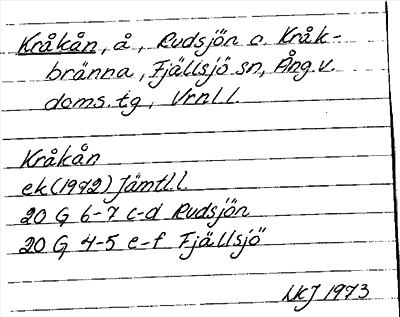 Kråkån, å, Rudsjön o. Kråk-
bränna, Fjällsjö sn, Ång.v.
doms.tg, Vrnl l.
Kråkån
ek (1972) Jämtl.l.
20 G 6-7 c-d Rudsjön
20 G 4-5 e-f Fjällsjö
1973